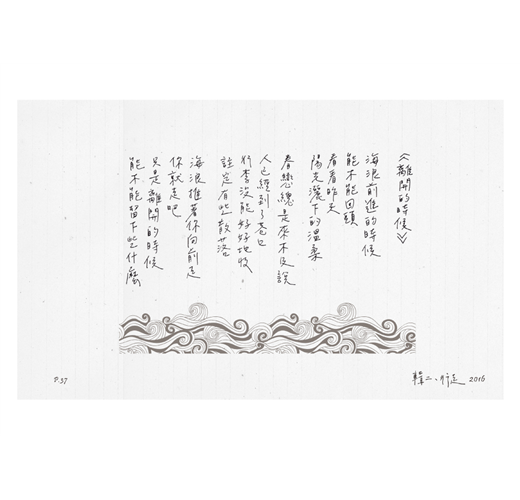 《離開的時候》
海浪前進的時候
能不能回頭
看看昨天
陽光灑下的溫柔
眷戀總是來不及說
人已經到了巷口
行李沒能好好地收，
註定有些散落
海浪推著你向前走
你就走吧
只是離開的時候
能不能留下些什麼
P.37
輯二、行走 2016